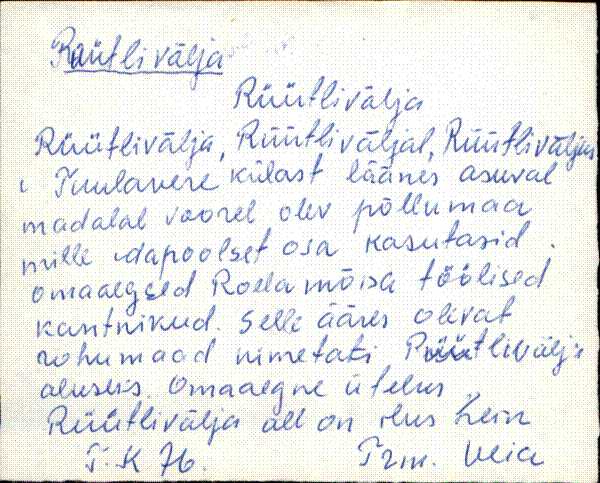 Rüütlivälja
Rüütlivälja
Rüütlivälja, Rüütliväljal, Rüütliväljus
Tuulavere külast läänes asuval
madalal voorel olev põllumaa
mille idapoolset osa kasutasid
omaaegsed Roela mõisa töölised
kantnikud. Selle ääres olevat
rohumaad nimetati Rüütlivälja
aluseks. Omaaegne ütelus
Rüütlivälja all on ilus hein
T. K 76. Trm.